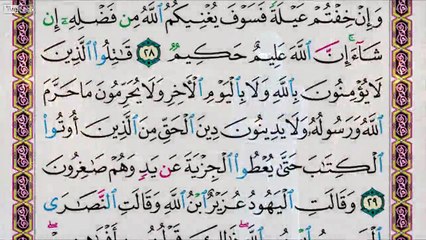 وَإِنْ خِفْتُمْ عَيْلَةً فَسَوْفَ يُغْنِيكُمُ ٱللَّهُ مِن فَضْلِهِۦٓ إِن
شَآءَ ۚ إِنَّ ٱللَّهَ عَلِيمٌ حَكِيمٌ ٢٨ قَٰتِلُوا۟ ٱلَّذِينَ
لَا يُؤْمِنُونَ بِٱللَّهِ وَلَا بِٱلْيَوْمِ ٱلْءَاخِرِ وَلَا يُحَرِّمُونَ مَا حَرَّمَ
ٱللَّهُ وَرَسُولُهُۥ وَلَا يَدِينُونَ دِينَ ٱلْحَقِّ مِنَ ٱلَّذِينَ أُوتُوا۟
ٱلْكِتَٰبَ حَتَّىٰ يُعْطُوا۟ ٱلْجِزْيَةَ عَن يَدٍ وَهُمْ صَٰغِرُونَ
٢٩ وَقَالَتِ ٱلْيَهُودُ عُزَيْرٌ ٱبْنُ ٱللَّهِ وَقَالَتِ ٱلنَّصَٰرَى